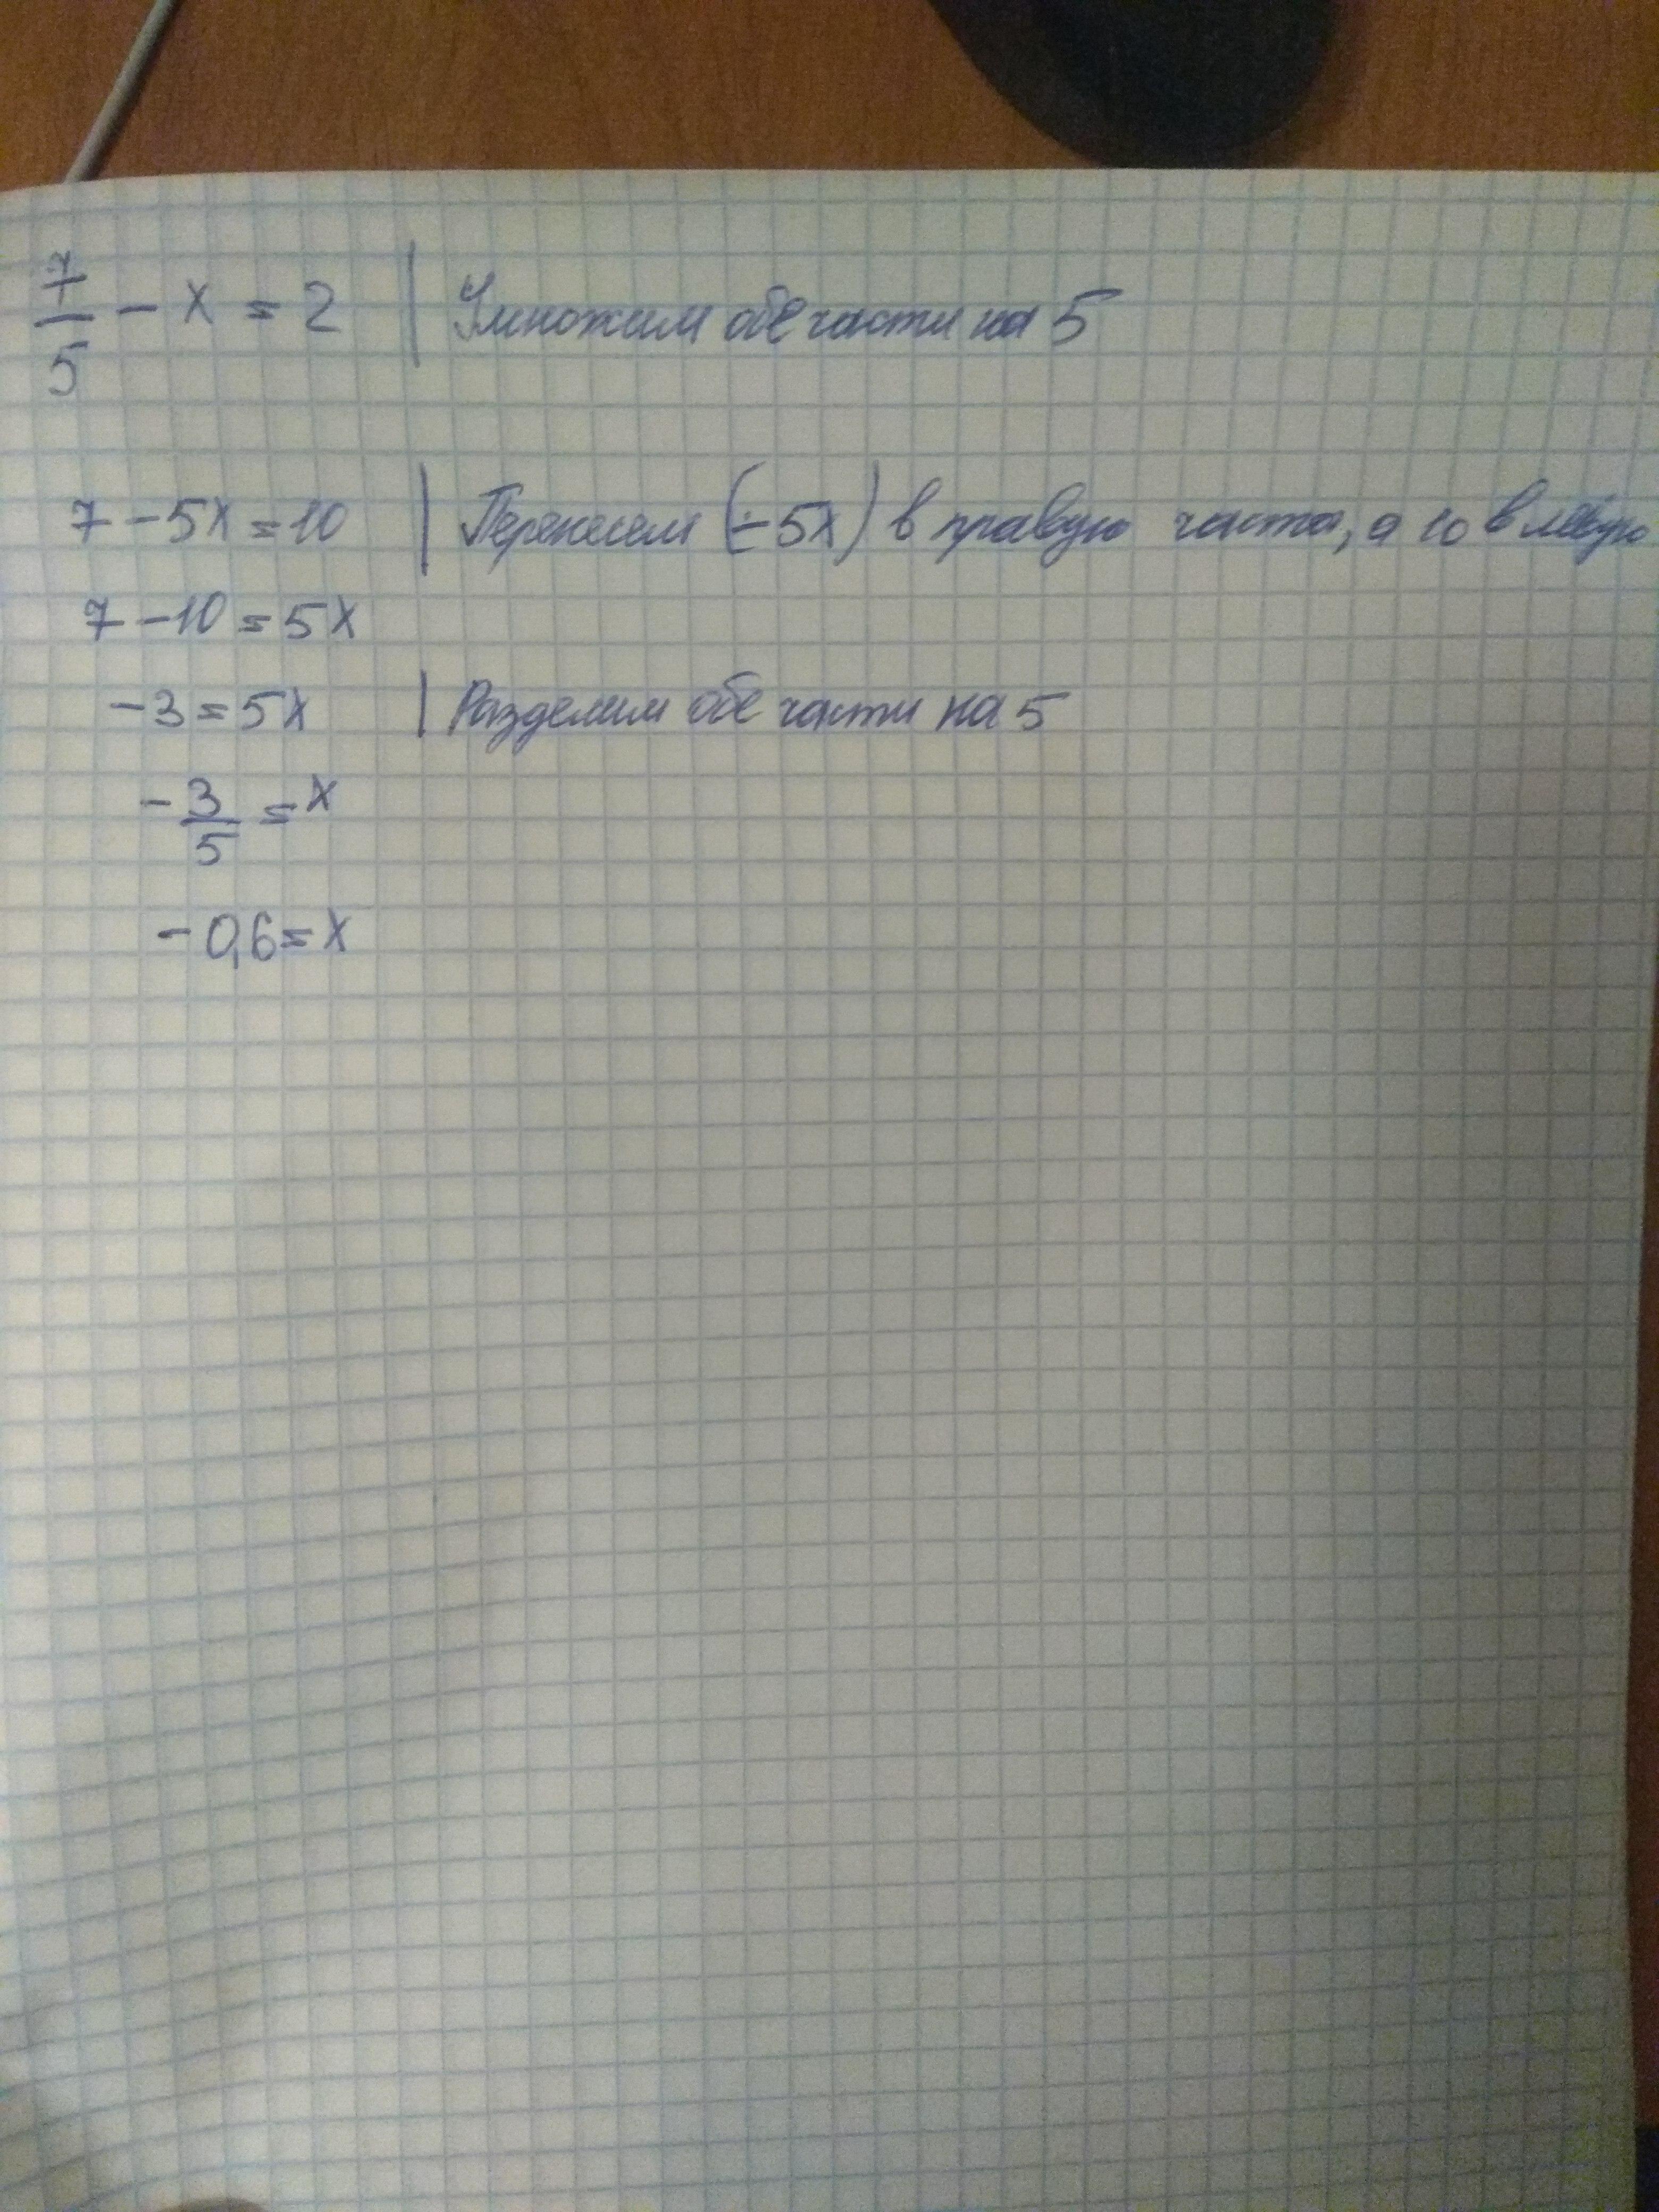 7/5 - x = 2 | Умножим обе части на 5
7 - 5x = 10 | Перенесем (-5x) в правую часть, а 10 в левую
7 - 10 = 5x
-3 = 5x | Разделим обе части на 5
-3/5 = x
-0,6 = x